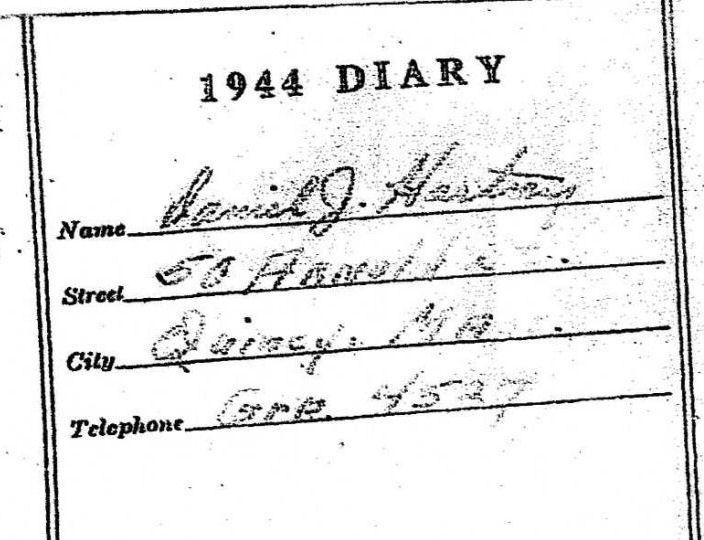 1944 DIARY
Name Daniel J.
Street 50
City Quincy, Ma
Telephone 4527